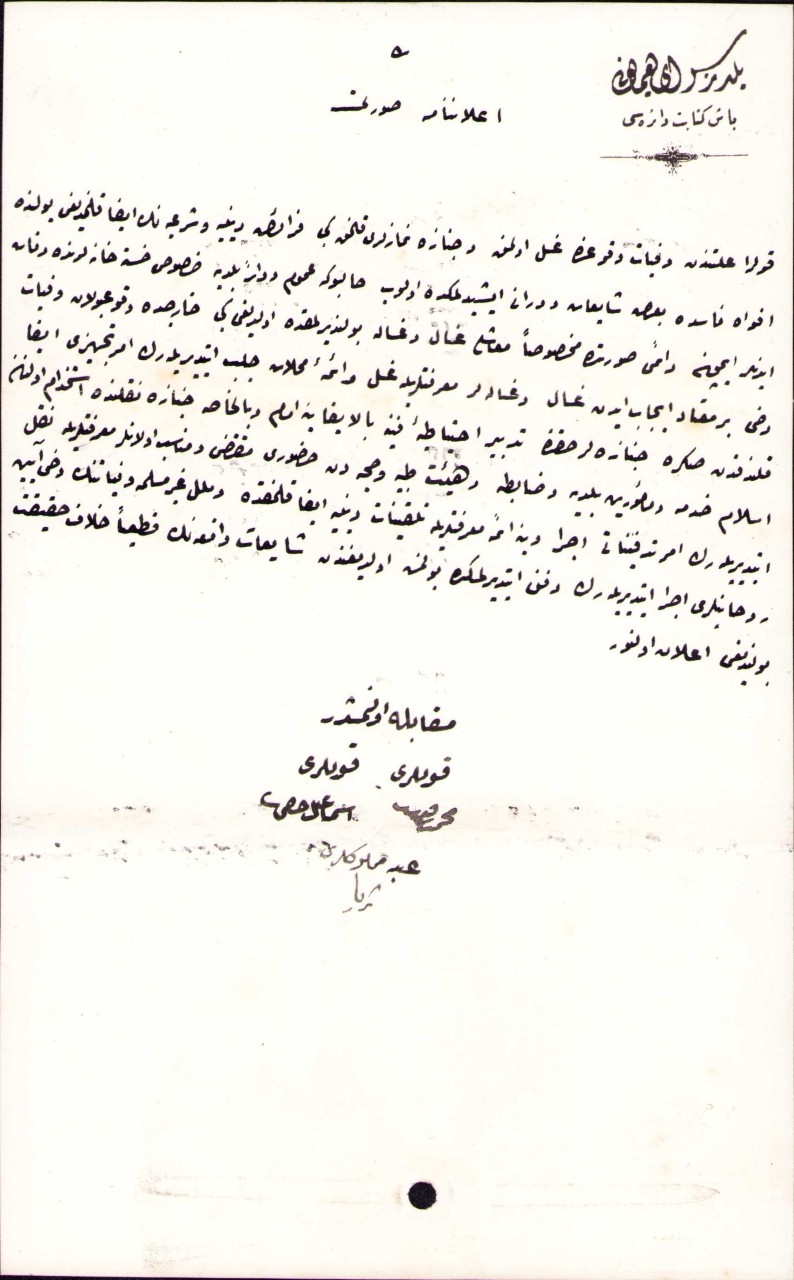 یلدیز سرای همایونی
باش کتابت دائره‌سی
٥
اعلاننامه صورتی
قولرا علتندن وفیات وقوعنده غسل اولنمق و جنازه نمازلری قلنمق کبی فرائض دینیه و شرعیه نك ایفا قلنمدیغی یولنده
افواه ناسده بعض شایعات دورانی ایشیدلمکده اولوب حالبوکه عموم دوائر بلدیه خصوصی خسته خانه لرنده وفات
ایدنلر ایچون دائمی صورتده مخصوصاً معاشلی غسال و غساله بولندیرلمقده اولدیغی کبی خارجده وقوعبولان وفیات
دخی بر مقدار ایجاب ایدن غسال و غساله لر معرفتلریله غسل و ائمهٔ محلات جلب ایتدیریله رك امر تجهیزی ایفا
قلندقدن صکره جنازه لر حقنده تدبیر احتیاطیهٔ فنیه بالایفا ینه امام و بالخاصه جنازه نقلنده استخدام اولنان
اسلام خدمه و مأمورین بلدیه و ضابطه و هیئت طبیه و صحیه دن حضوری مقتضی و مناسب اولانلر معرفتلریله نقل
ایتدیریله رك امر تدفیناتی اجرا و ینه ائمه معرفتلریله تلقینات دینیه ایفا قلنمقده و ملل غیر مسلمه وفیاتنك دخی آیین
روحانیلری اجرا ایتدیریله رك دفن ایتدیرلمکده بولنمش اولدیغندن شایعات واقعه نك قطعیاً خلاف حقیقت
بولندیغی اعلان اولنور
مقابله اولنمشدر
قوللری قوللری
اسماعیل حقی
عبد مملوکلری
ثریا